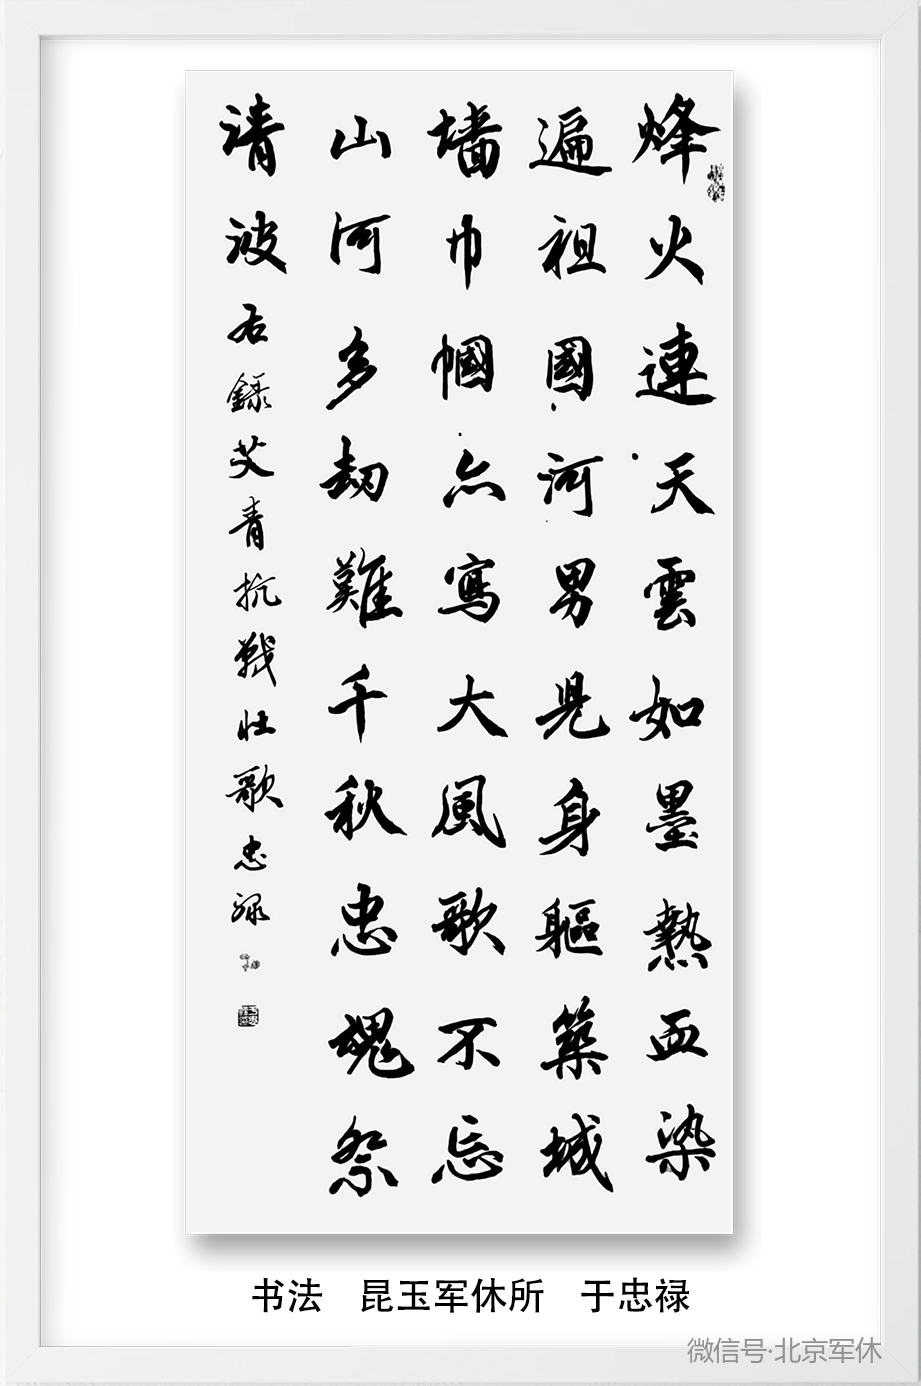 烽火連天雲如墨熱血染
遍祖國河男児身軀築城
墻巾帼亦寫大風歌不忘
山河多劫難千秋忠魂祭
清波右録艾青抗戰壮歌忠禄
书法 昆玉军休所 于忠禄
微信号·北京军休